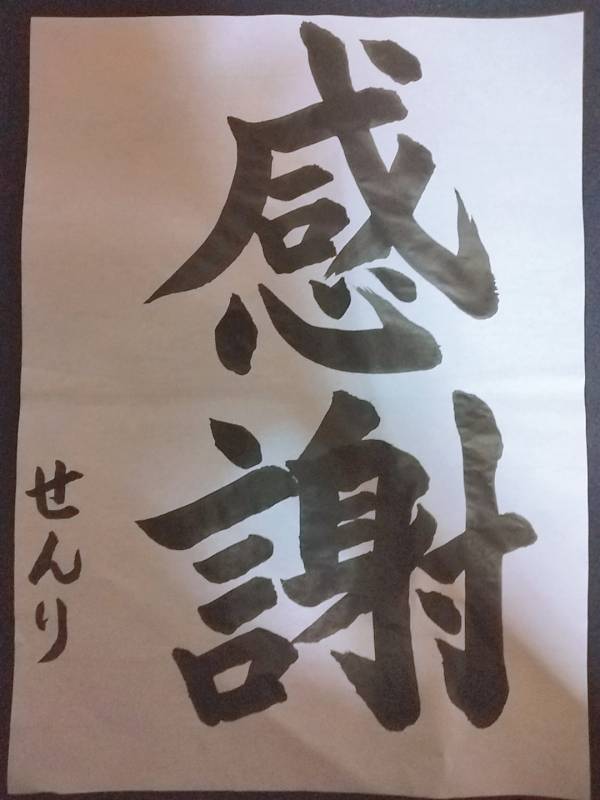 感謝
せんり